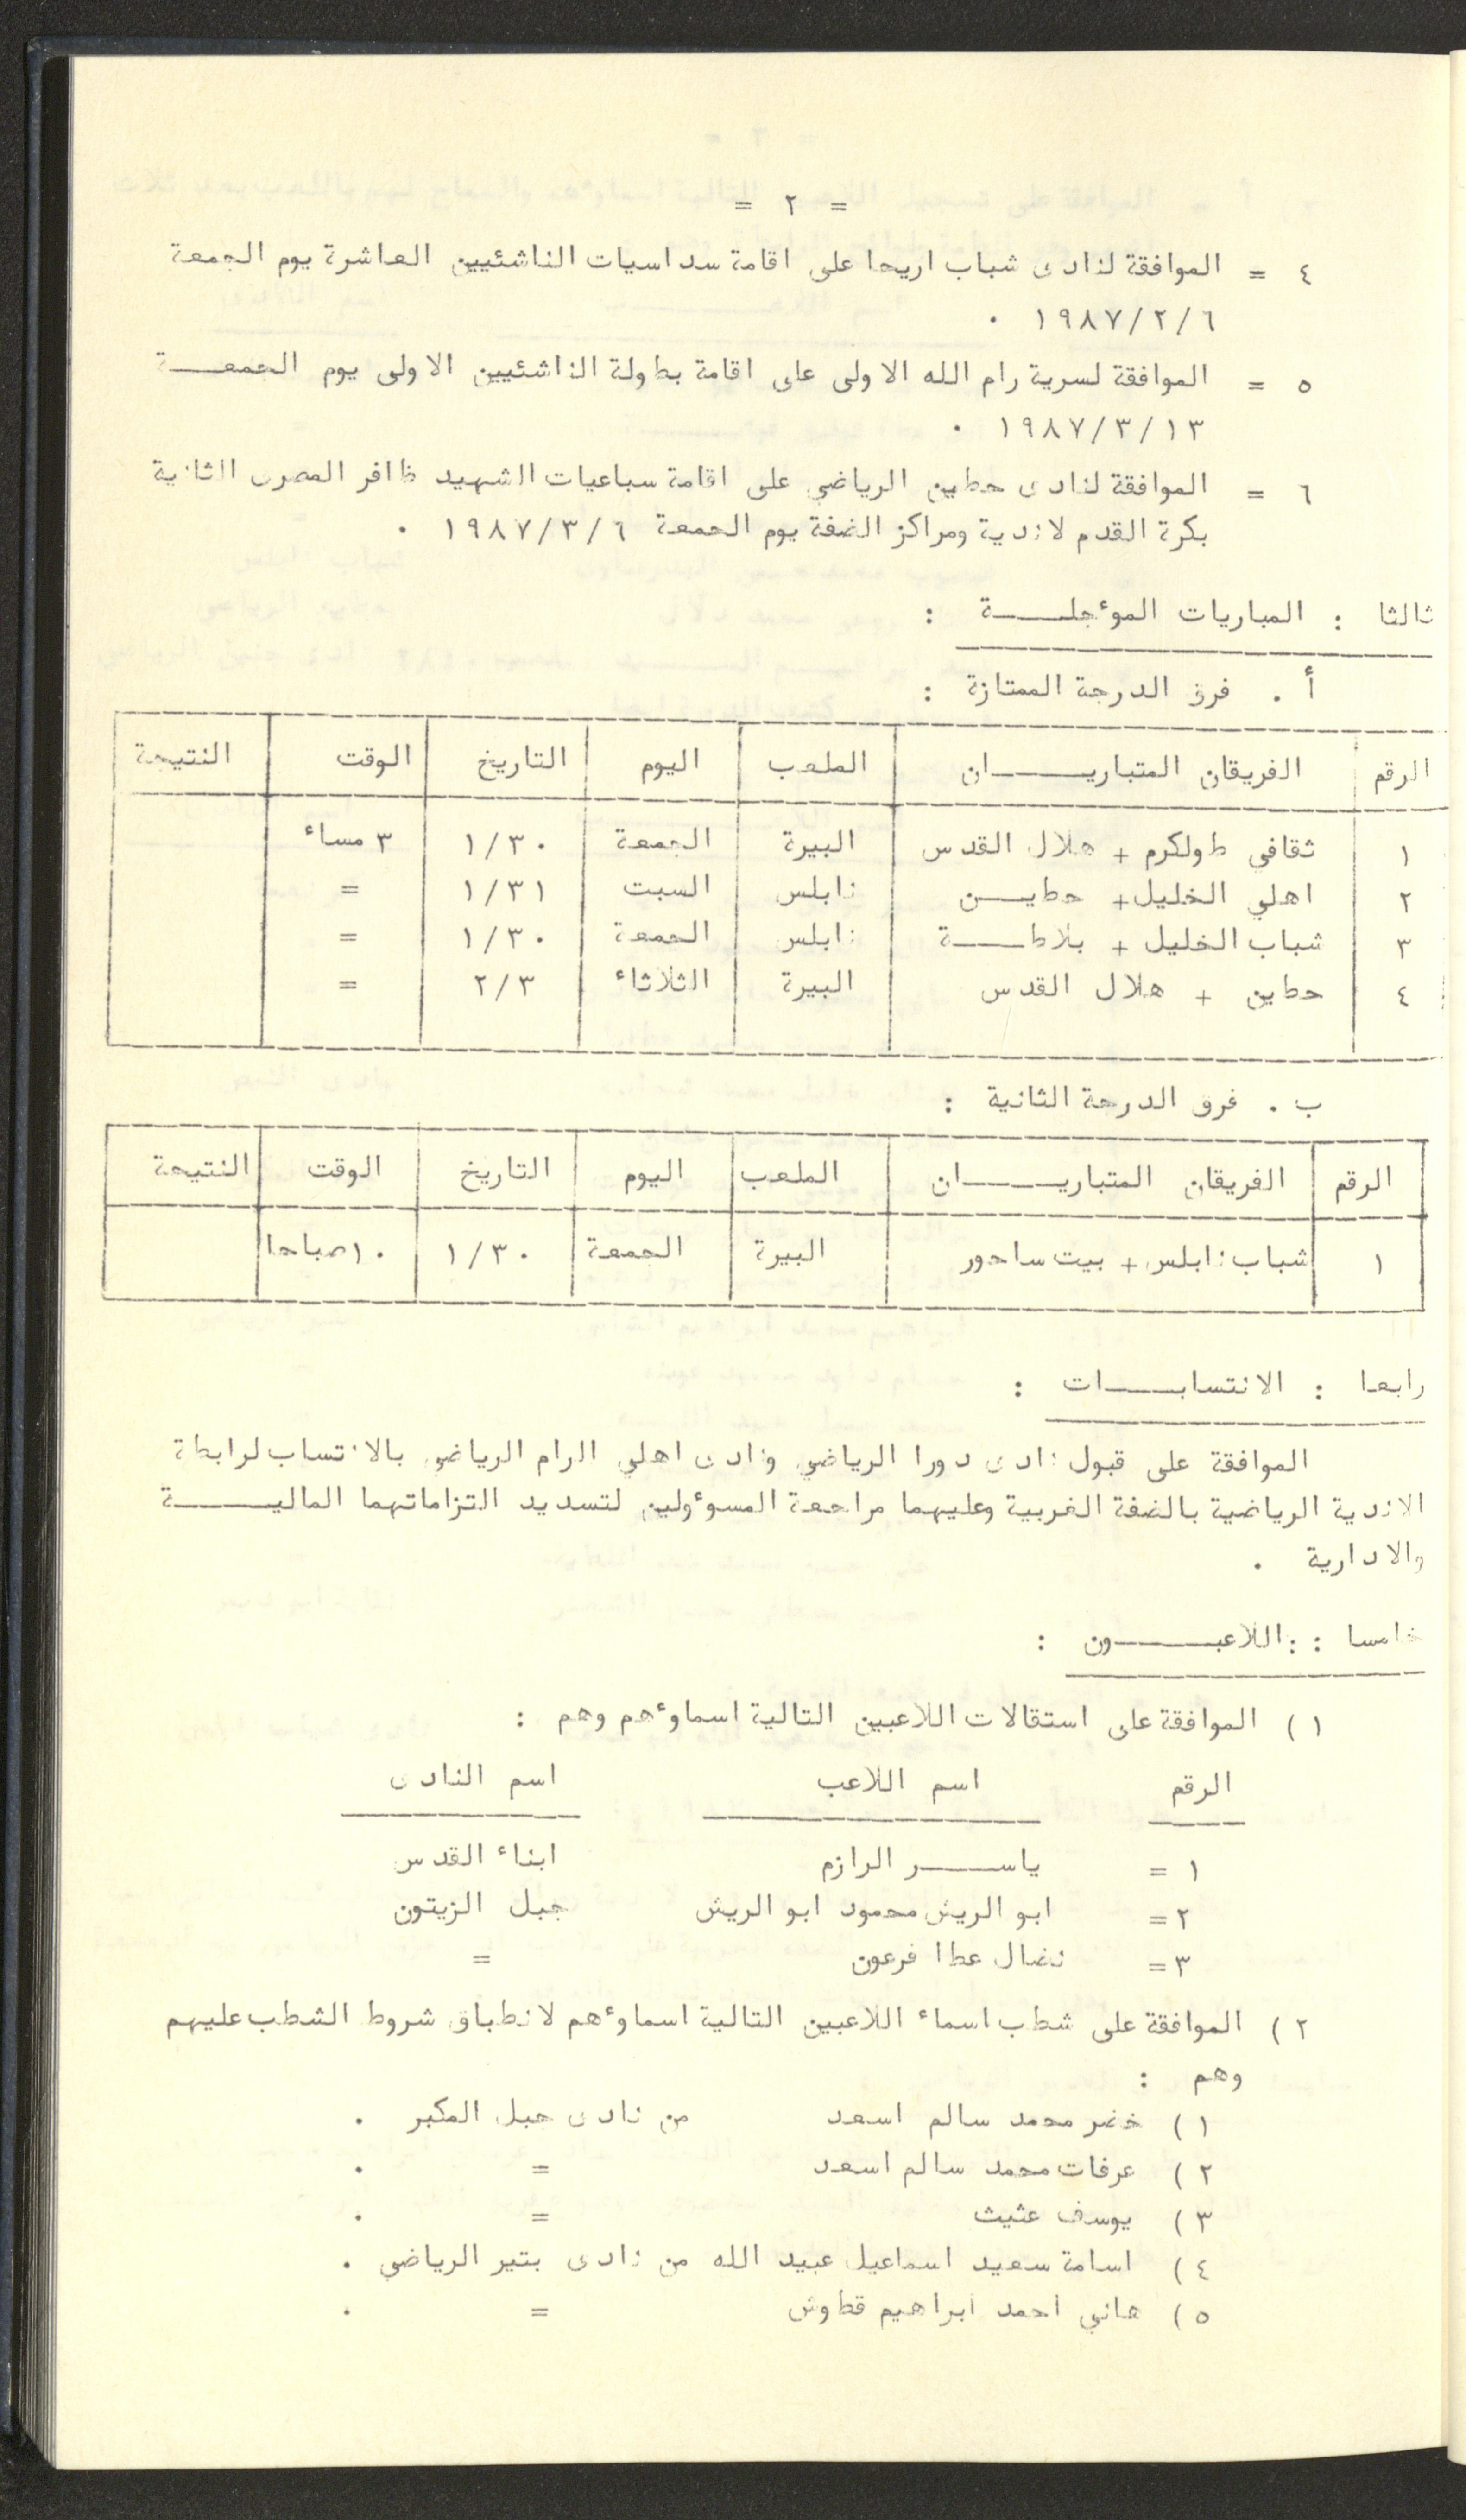 = ٢ =
٤ = الموافقة لنادى شباب اريحا على اقامة سداسيات الناشئيين العاشرة يوم الجمعة
١٩٨٧/٢/٦ .
٥ = الموافقة لسرية رام الله الاولى على اقامة بطولة الناشئيين الاولى يوم الجمعة
١٩٨٧/٣/١٣ .
٦ = الموافقة لنادى حطين الرياضي على اقامة سباعيات الشهيد ظافر المصرى الثانية
بكرة القدم لاندية ومراكز الضفة يوم الجمعة ١٩٨٧/٣/٦ .
ثالثا : المباريات الموءجلة :
أ . فرق الدرجة الممتازة :
الرقم الفريقان المتباريان الملعب اليوم التاريخ الوقت النتيجة
١ ثقافي طولكرم + هلال القدس البيرة الجمعة ١/٣٠ ٣ مساء
٢ اهلي الخليل + حطين نابلس السبت ١/٣١ =
٣ شباب الخليل + بلاطة نابلس الجمعة ١/٣٠ =
٤ حطين + هلال القدس البيرة الثلاثاء ٢/٣ =
ب . فرق الدرجة الثانية :
الرقم الفريقان المتباريان الملعب اليوم التاريخ الوقت النتيجة
١ شباب نابلس + بيت ساحور البيرة الجمعة ١/٣٠ ١٠صباحا
رابعا : الانتسابات :
الموافقة على قبول نادى دورا الرياضي ونادى اهلي الرام الرياضي بالانتساب لرابطة
الاندية الرياضية بالضفة الغربية وعليهما مراجعة المسوءولين لتسديد التزاماتهما المالية
والادارية .
خامسا : : اللاعبون :
١ ) الموافقة على استقالات اللاعبين التالية اسماوءهم وهم :
الرقم اسم اللاعب اسم النادى
١ = ياسر الرازم ابناء القدس
٢ = ابو الريش محمود ابو الريش جبل الزيتون
٣ = نضال عطا فرعون =
٢ ) الموافقة على شطب اسماء اللاعبين التالية اسماوءهم لانطباق شروط الشطب عليهم
وهم :
١ ) خضر محمد سالم اسعد من نادى جبل المكبر .
٢ ) عرفات محمد سالم اسعد = .
٣ ) يوسف عثيث = .
٤ ) اسامة سعيد اسماعيل عبيد الله من نادى بتير الرياضي .
٥ ) هاني احمد ابراهيم قطوش = .